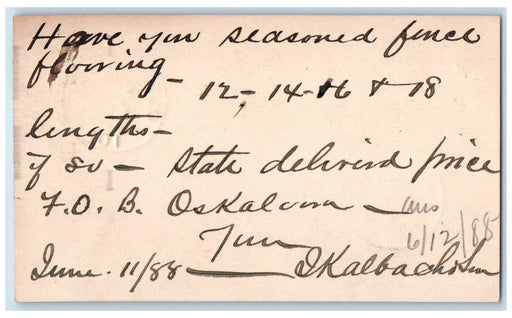 Have you seasoned fence
flooring —
12 - 14 - 16 & 18
lengths —
if so — state delivered price
F.O.B. Oskaloosa — ans
6/12/88
June. 11/88 — I Kalbach & Son